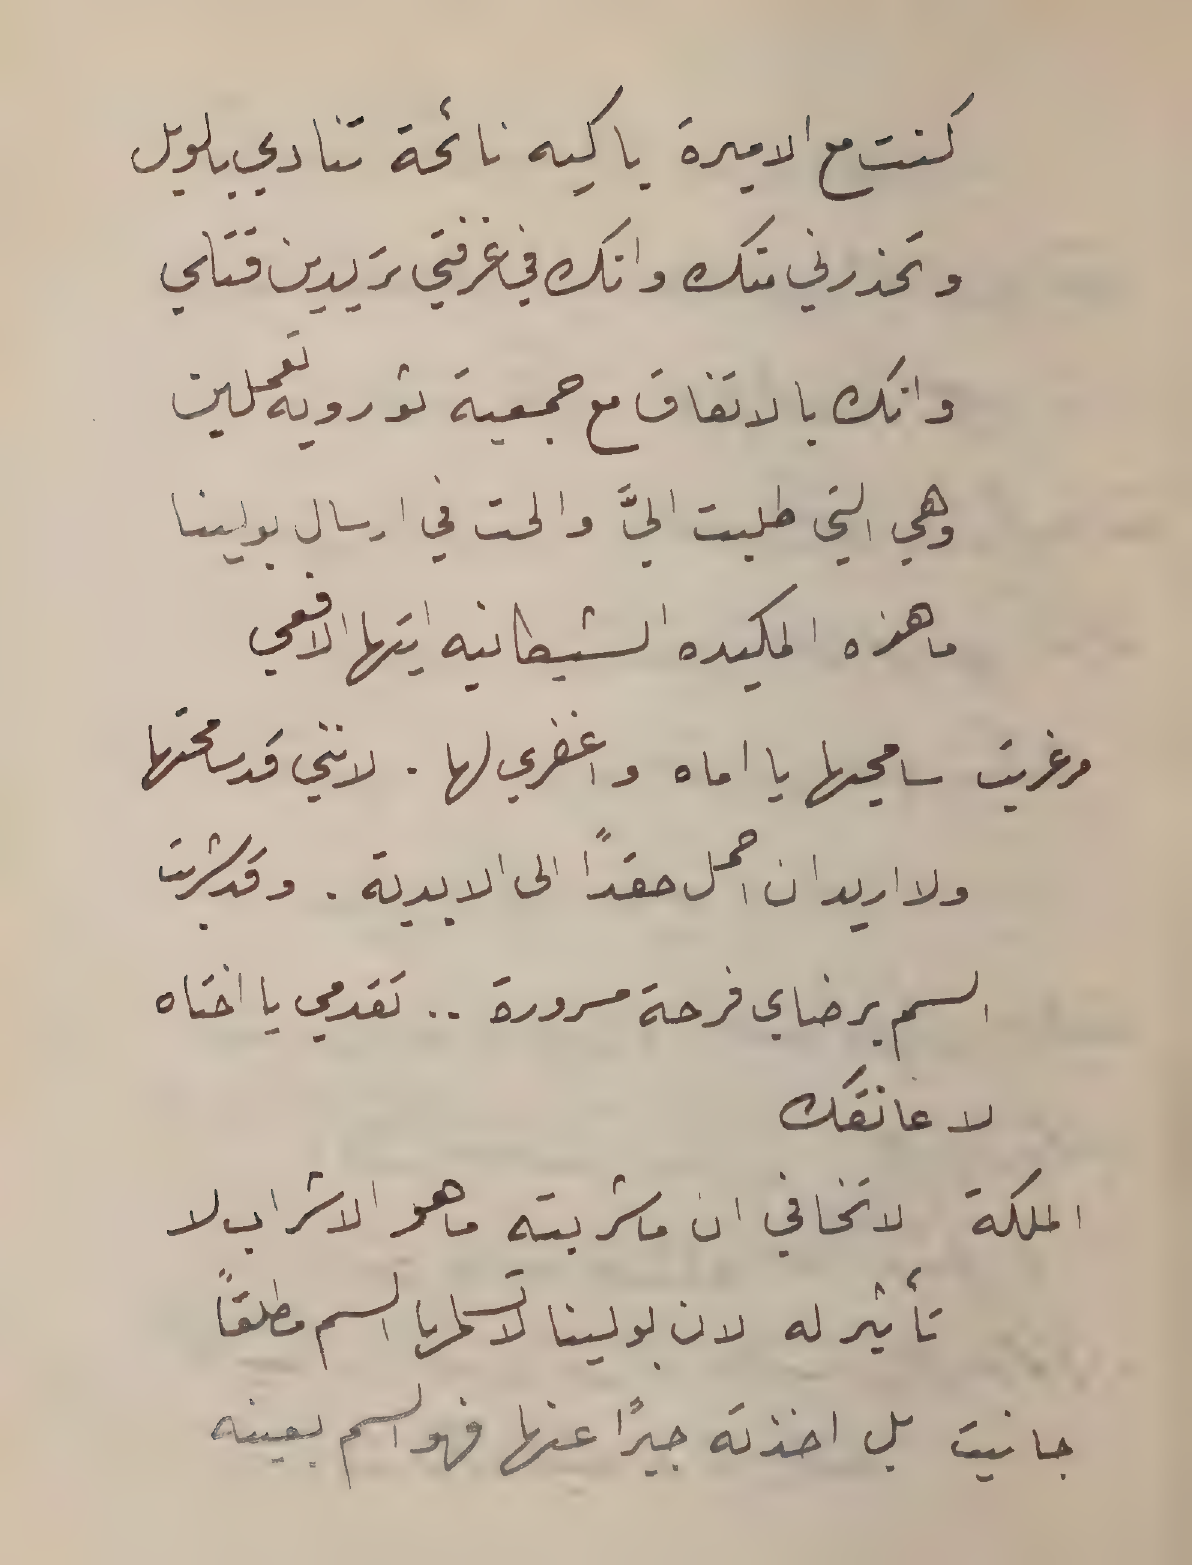 كنت مع الاميرة باكيه نائحة تنادي بالويل
وتحذرني منك وانك في غرفتي تريدين قتلي
وانك بالاتفاق مع جمعية ثورويه تعملين
وهي التي طلبت اليَّ والحت في ارسال بولينا
ما هذه المكيده الشيطانيه ايتها الافعي
مرغريت سامحيها يا اماه واغفري لها . لانني قد سامحتها
ولا اريد ان احمل حقدًا الى الابدية . وقد شربت
السم برضاي فرحة مسرورة .. تقدمي يا اختاه
لاعانقك
الملكة لا تخافي ان ما شربته ما هو الا شراب لا
تأثير له لان بولينا لا تسلمها السم مطلقاً
جانيت بل اخذته جبرًا عنها فهو السم بعينه